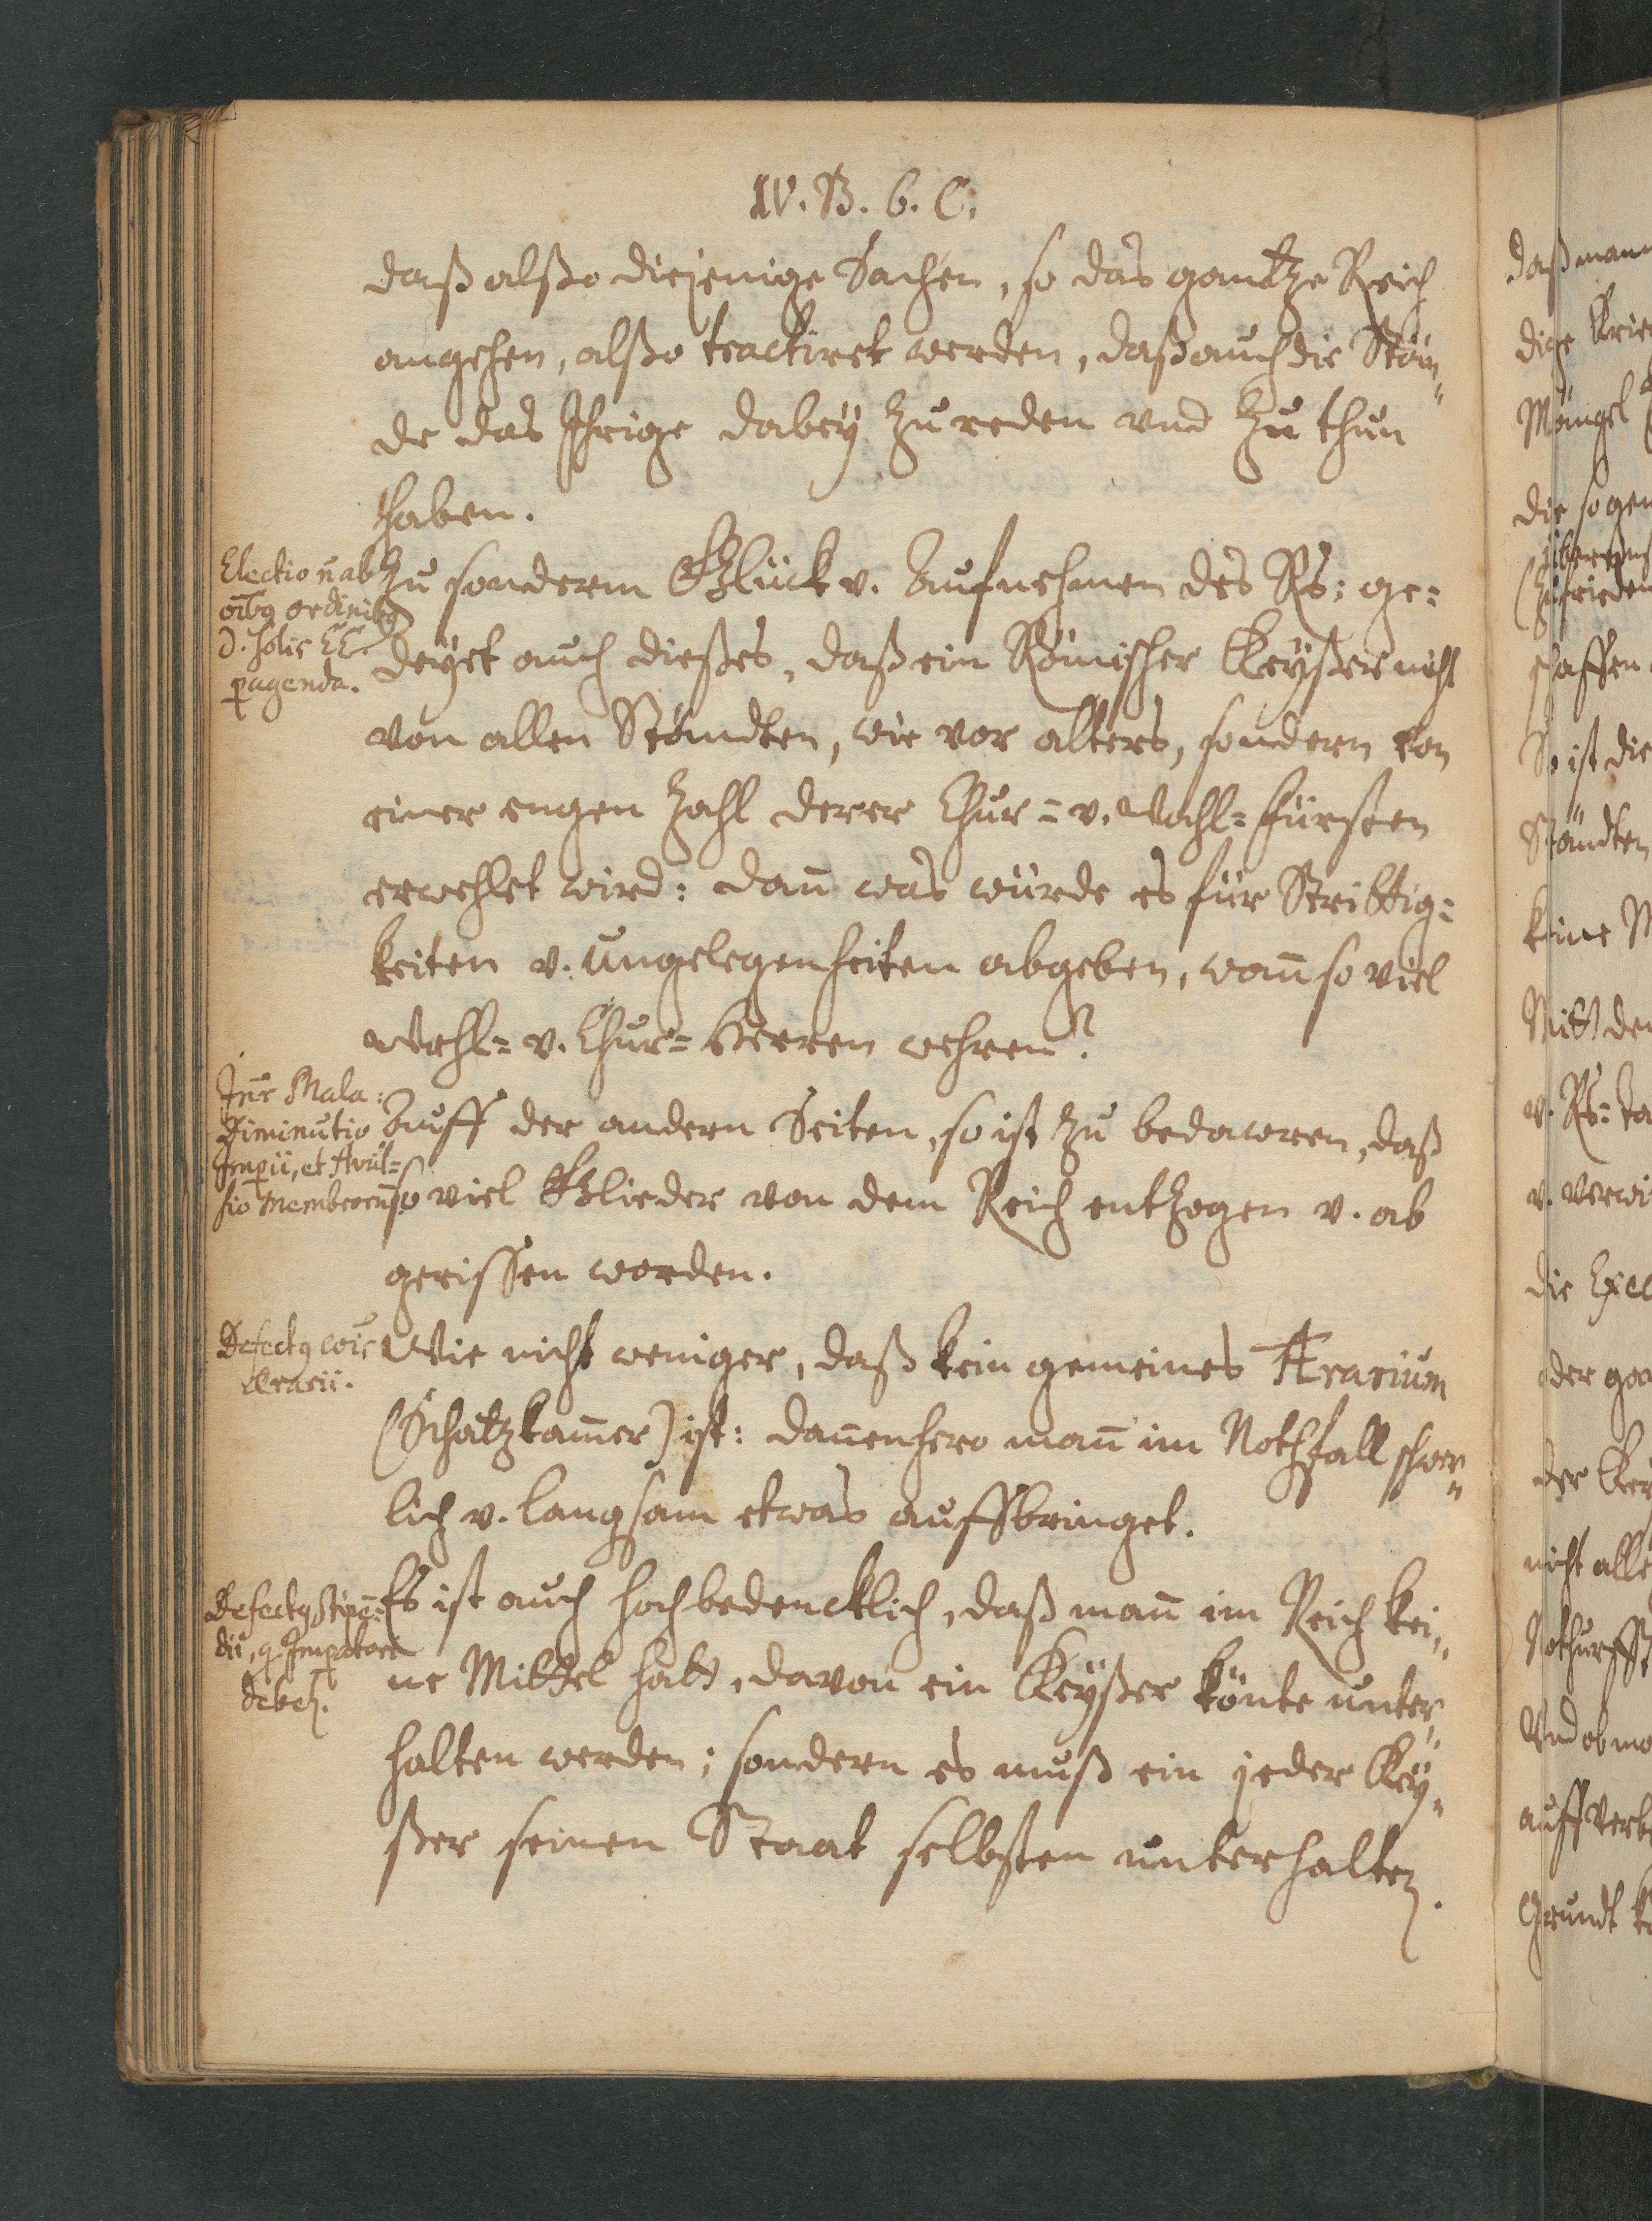 IV. B. 6. C.
daß alßo diejenige Sachen, so das gantze Reich
angehen, alßo tractiret werden, daß auch die Stän„
de das Ihrige dabey zu reden vnd zu thun
haben.
Electio nab
oībq ordinibq
d. solis EE.
pagenda.
Zu sonderm Glück v. Aufnehmen des Rs: ge=
deyet auch dießes, daß ein Römischer Keyßer nicht
von allen Ständten, wie vor alters, sondern von
einer engen Zahl derer Chur= v. Wahl=fürsten
erwehlet wird: dan̄ was würde es für Strittig=
keiten v. Ungelegenheiten abgeben, wan̄ so viel
Wahl= v. Chur=Herren wehren?
Int̄ Mala:
Diminutio
Impii, et Avul=
sio Membrorum̄.
Auff der andern Seiten, so ist zu bedawren, daß
so viel Glieder von dem Reich entzogen v. ab
gerissen worden.
Defectq cōis
Ærarii.
Wie nicht weniger, daß kein gemeines Ærarium
(Schatzkam̄er) ist: dan̄enhero man̄ im Nothfall schwer„
lich v. langsam etwas auffbringet.
Defectq stipē=
dii, q Impatori
debet.
Es ist auch hochbedencklich, daß man̄ im Reich kei„
ne Mittel hatt, davon ein Keyßer könte unter„
halten werden; sondern es muß ein jeder Key„
ßer seinen Staat selbsten unterhalten.
daß mann
dige Krie
Mängel
die so gen
schaffen
So ist die
Ständten
keine M
Mitt den
v. Rs=ta
v. verwi
die Exec
oder gar
der Key
nicht alle
Nothurfft
Vnd ob ma
auff verb
Grundt k